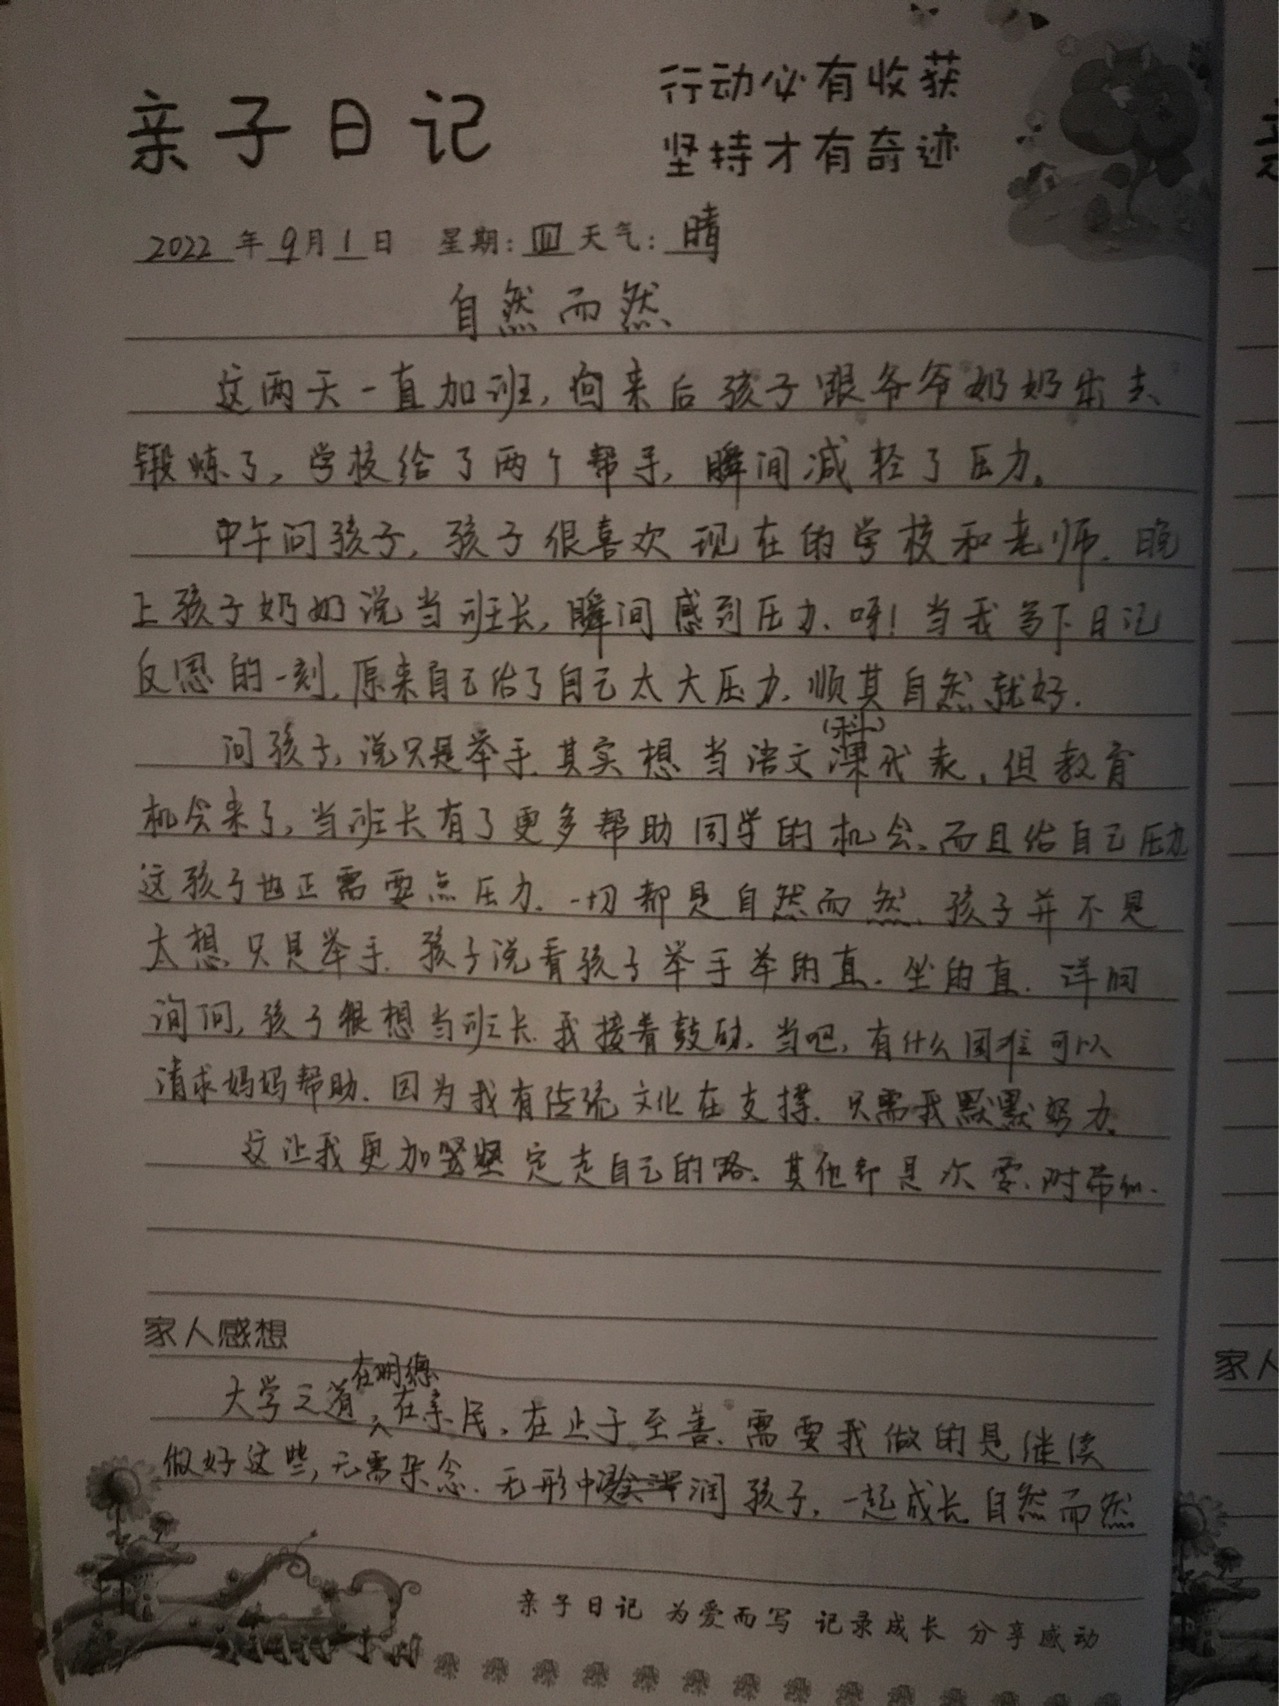 亲子日记
行动必有收获
坚持才有奇迹
2022年9月1日 星期:四 天气:晴
自然而然
这两天一直加班,回来后孩子跟爷爷奶奶出去
锻炼了,学校给了两个帮手,瞬间减轻了压力。
中午问孩子,孩子很喜欢现在的学校和老师.晚
上孩子奶奶说当班长,瞬间感到压力.呀!当我写下日记
反思的一刻,原来自己给了自己太大压力.顺其自然就好.
问孩子,说只是举手.其实想当语文课(科)代表,但教育
机会来了,当班长有了更多帮助同学的机会、而且给自己压力
这孩子也正需要点压力.一切都是自然而然.孩子并不是
太想只是举手.孩子说看孩子举手举的直.坐的直.详细
询问,孩子很想当班长.我接着鼓励.当吧,有什么困难可以
请求妈妈帮助.因为我有传统文化在支撑.只需我默默努力.
这让我更加坚定走自己的路、其他都是次要、附带的.
家人感想
大学之道在明德在亲民,在止于至善.需要我做的是继续
做好这些,无需杂念.无形中润孩子,一起成长.自然而然
亲子日记 为爱而写 记录成长 分享感动
家人